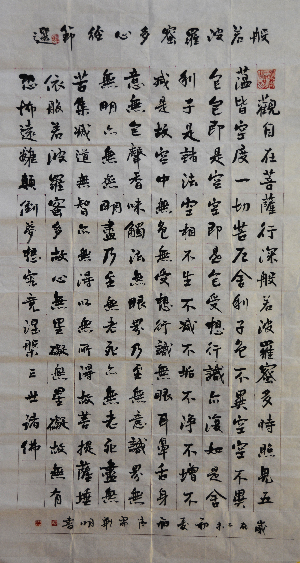 般若波羅蜜多心経節選
觀自在菩薩行深般若波羅蜜多時照見五
蘊皆空度一切苦厄舍利子色不異空空不異
色色即是空空即是色受想行識亦復如是舍
利子是諸法空相不生不滅不垢不淨不增不
減是故空中無色無受想行識無眼耳鼻舌身
意無色聲香味觸法無眼界乃至無意識界無
無明亦無無明盡乃至無老死亦無老死盡無
苦集滅道無智亦無得以無所得故菩提薩埵
依般若波羅蜜多故心無罣礙無罣礙故無有
恐怖遠離顛倒夢想究竟涅槃三世諸佛